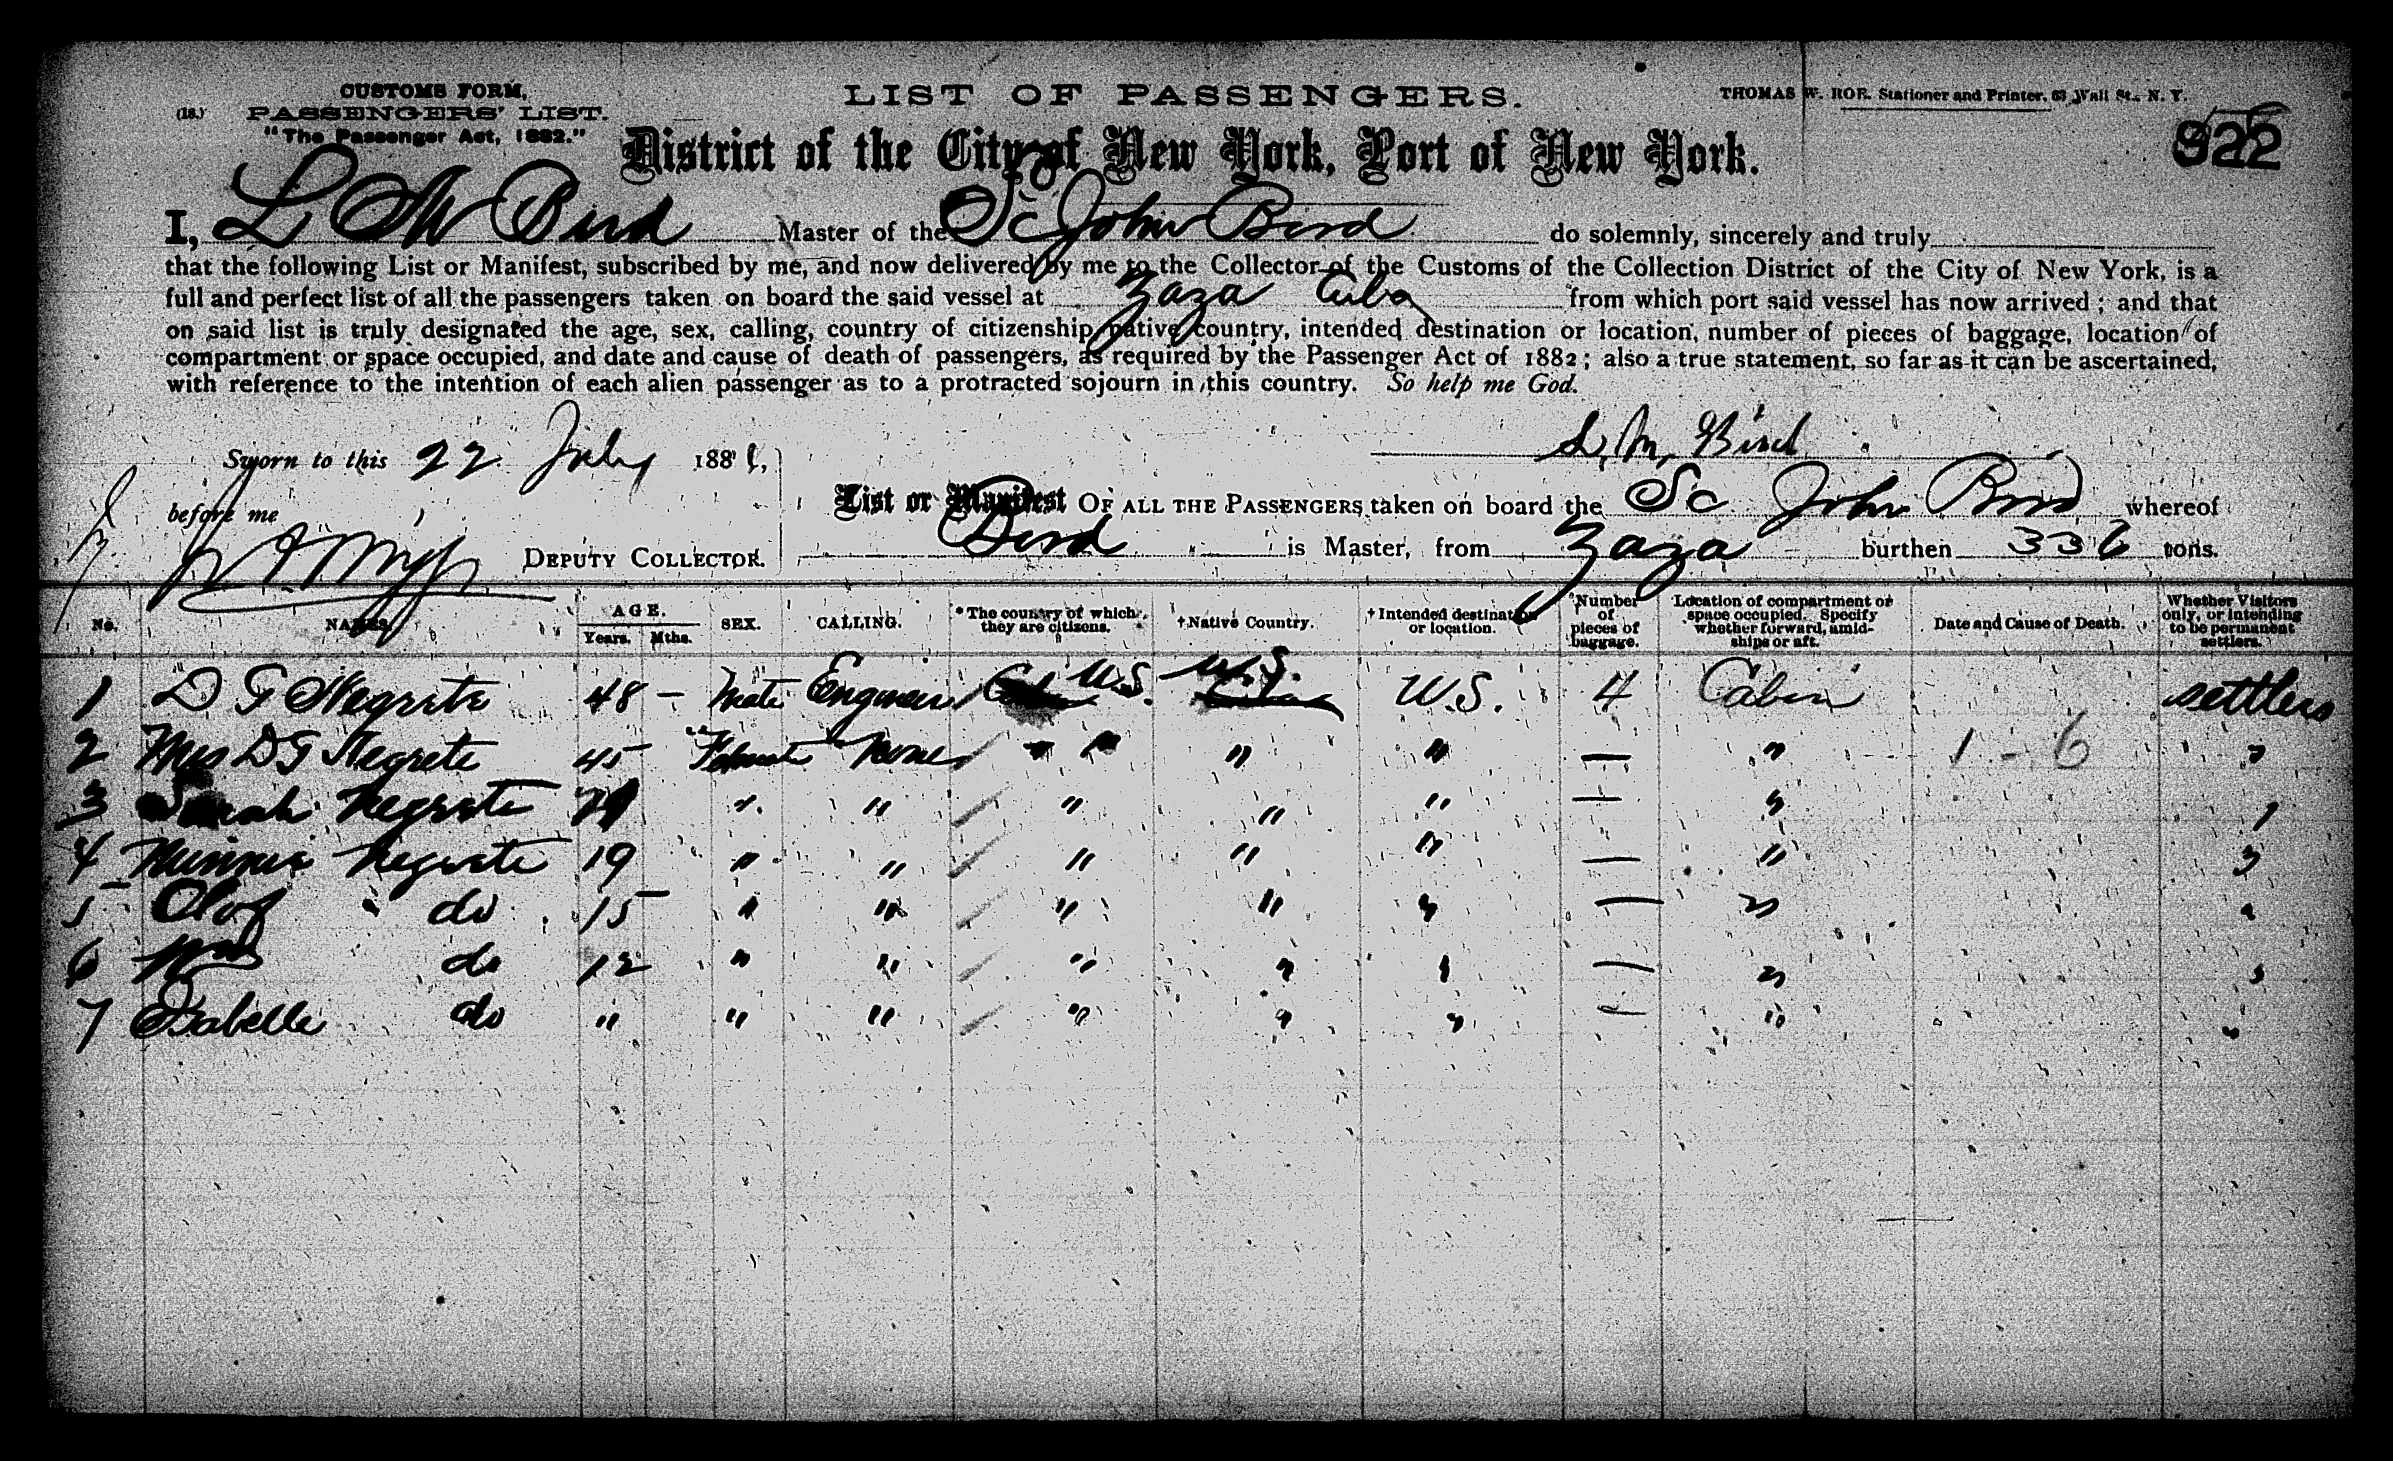 CUSTOMS FORM,
(18.) PASSENGERS' LIST.
"The Passenger Act, 1882."
LIST OF PASSENGERS.
THOMAS W. ROE. Stationer and Printer, 63 Wall St., N. Y.
922
District of the City of New York, Port of New York.
I, L M Bird Master of the Sc John Bird do solemnly, sincerely and truly
that the following List or Manifest, subscribed by me, and now delivered by me to the Collector of the Customs of the Collection District of the City of New York, is a
full and perfect list of all the passengers taken on board the said vessel at Zaza Cuba from which port said vessel has now arrived; and that
on said list is truly designated the age, sex, calling, country of citizenship, native country, intended destination or location, number of pieces of baggage, location of
compartment or space occupied, and date and cause of death of passengers, as required by the Passenger Act of 1882; also a true statement, so far as it can be ascertained,
with reference to the intention of each alien passenger as to a protracted sojourn in this country. So help me God.
L. M. Bird
Sworn to this 22 July 188
before me
DEPUTY COLLECTOR.
List or Manifest OF ALL THE PASSENGERS taken on board the Sc John Bird whereof
Bird is Master, from Zaza burthen 336 tons.
No. NAMES AGE. Years. Mths. SEX. CALLING. * The country of which they are citizens. † Native Country. † Intended destination or location. Number of pieces of baggage. Location of compartment or space occupied. Specify whether forward, amidships or aft. Date and Cause of Death. Whether Visitors only, or intending to be permanent settlers.
1 D G Negrete 48 – Male Engineer U.S. U.S. U.S. 4 Cabin settlers
2 Mrs D G Negrete 45 Female None " " " " — " 1 - 6 "
3 Sarah Negrete " " " " " — " "
4 Minnie Negrete 19 " " " " " — " "
5 Olof " do 15 " " " " " — " "
6 Wm do 12 " " " " " — " "
7 Isabelle do " " " " " " — " "